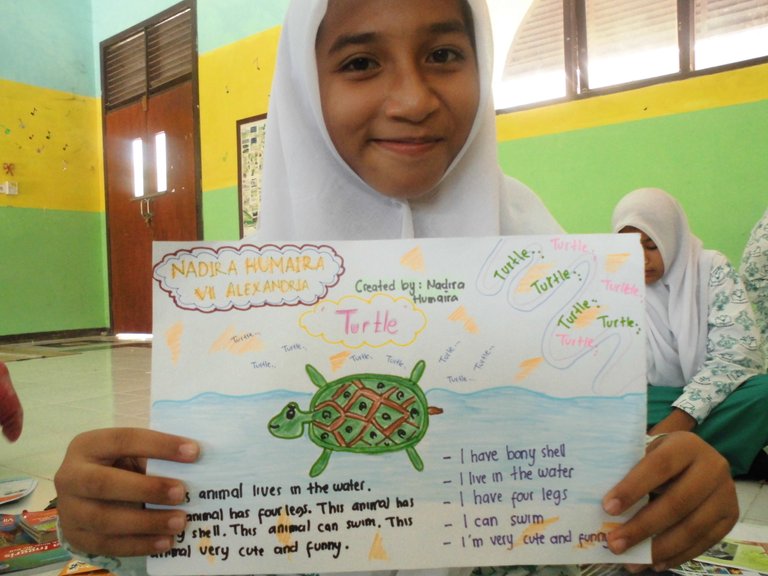 NADIRA HUMAIRA
VII ALEXANDRIA
Created by: Nadira
Humaira
Turtle
Turtle..
Turtle..
Turtle..
Turtle..
Turtle..
Turtle..
Turtle..
Turtle...
Turtle..
Turtle..
Turtle..
Turtle..
Turtle..
Turtle..
Turtle..
animal lives in the water.
animal has four legs. This animal has
shell. This animal can swim. This
animal very cute and funny.
- I have bony shell
- I live in the water
- I have four legs
- I can swim
- I'm very cute and funny